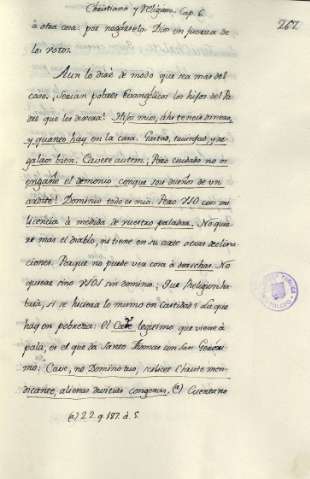 Christiano y Religioso. Cap. 6
267
à otra cosa: por negarselo Dios en fuerza de
los votos.
Aun lo diré de modo que sea mas del
caso. ¿Serian pobres Evangelicos los hijos del Pa-
dre que les dixera? Hijos mios, ahi teneis dinero,
y quanto hay en la casa. Gastad, triunfad, y re-
galaos bien. Cavete autem. ¡Pero cuidado no os
engañe el demonio conque sois dueños de un
ardite! Dominio todo es mio. Pero USO con mi
licencia à medida de vuestro paladar. No quie-
re mas el diablo, ni tiene en su arte otras
ciones. Porque no puede ver cosa à derechas. No
quiere sino USOS sin dominio. ¡Que Religion ha-
bria, si se hiciera lo mismo en Castidad! La que
hay en pobreza. El Cave legitimo que viene à
pelo, es el que dá Santo Thomas con San Geroni-
mo: Cave, ne Domino tuo, scilicet Christo men-
dicante, alienas divitias congeras. (a) Cuentano
(a) 2.2. q. 187. à. 5.